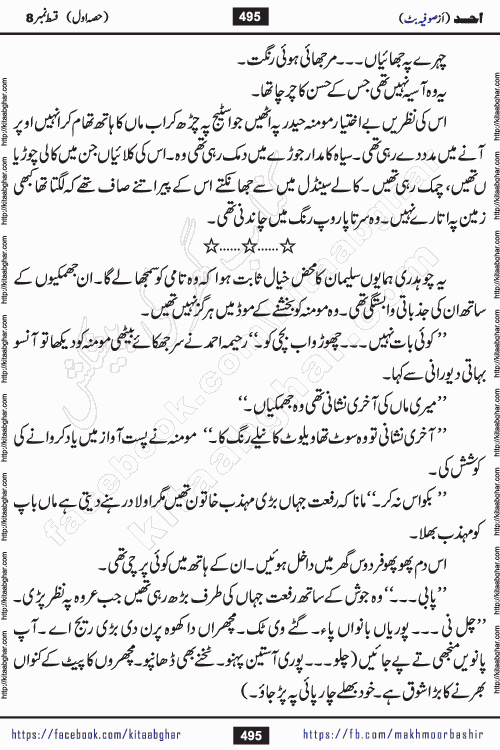 احمد (از صوفیہ بٹ) 495 (حصہ اول) قسط نمبر 8
چہرے پہ جھائیاں ۔۔۔ مرجھائی ہوئی رنگت۔
یہ وہ آسیہ نہیں تھی جس کے حسن کا چرچا تھا۔
اس کی نظریں بے اختیار مومنہ حیدر پہ اٹھیں جو اسٹیج پہ چڑھ کر اب ماں کا ہاتھ تھام کر انہیں اوپر
آنے میں مدد دے رہی تھی۔ سیاہ کامدار جوڑے میں دمک رہی تھی وہ۔ اس کی کلائیاں جن میں کالی چوڑیا
ں تھیں، چمک رہی تھیں۔ کالے سینڈل میں سے جھانکتے اس کے پیر اتنے صاف تھے کہ لگتا تھا کبھی
زمین پہ اتارے نہیں۔ وہ سرتا پا روپ رنگ میں چاندنی تھی۔
☆......☆......☆
یہ چوہدری ہمایوں سلیمان کا محض خیال ثابت ہوا کہ وہ تامی کو سمجھا لے گا۔ ان جھمکیوں کے
ساتھ ان کی جذباتی وابستگی تھی۔ وہ مومنہ کو بخشنے کے موڈ میں ہرگز نہیں تھیں۔
”کوئی بات نہیں ۔۔۔ چھوڑو اب بچی کو۔“ رحیمہ احمد نے سر جھکائے بیٹھی مومنہ کو دیکھا تو آنسو
بہاتی دیورانی سے کہا۔
”میری ماں کی آخری نشانی تھی وہ جھمکیاں۔“
”آخری نشانی تو وہ سوٹ تھا ویلوٹ کا نیلے رنگ کا۔“ مومنہ نے پست آواز میں یاد کروانے کی
کوشش کی۔
”بکواس نہ کر۔“ مانا کہ رفعت جہاں بڑی مہذب خاتون تھیں مگر اولاد رہنے دیتی ہے ماں باپ
کو مہذب بھلا۔
اس دم پھوپھو فردوس گھر میں داخل ہوئیں۔ ان کے ہاتھ میں کوئی پرچی تھی۔
”پابی ۔۔۔“ وہ جوش کے ساتھ رفعت جہاں کی طرف بڑھ رہی تھیں جب عروہ پہ نظر پڑی۔
”چل نی ۔۔۔ پوریاں بانواں پاء۔ گٹے وی ٹک۔ مچھراں دا کھوہ پرن دی بڑی ریج اے۔ آپ
پانویں منجھی تے پے جائیں (چلو ۔۔۔ پوری آستین پہنو۔ ٹخنے بھی ڈھانپو۔ مچھروں کا پیٹ کے کنواں
بھرنے کا بڑا شوق ہے۔ خود بھلے چارپائی پہ پڑ جاؤ۔)
https://facebook.com/kitaabghar 495 https://fb.com/makhmoorbashir
http://kitaabghar.com
kitaabghar.com
facebook.com/kitaabghar